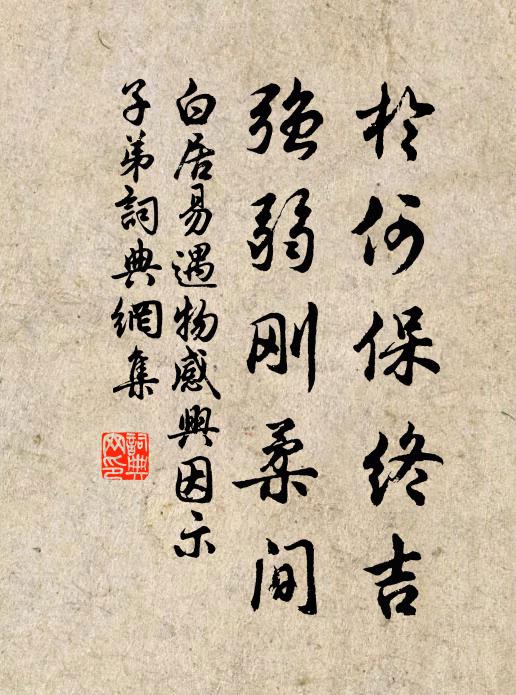 於何保终吉
强弱刚柔间
白居易遇物感興因示
子弟詞典網集
詞典
网印